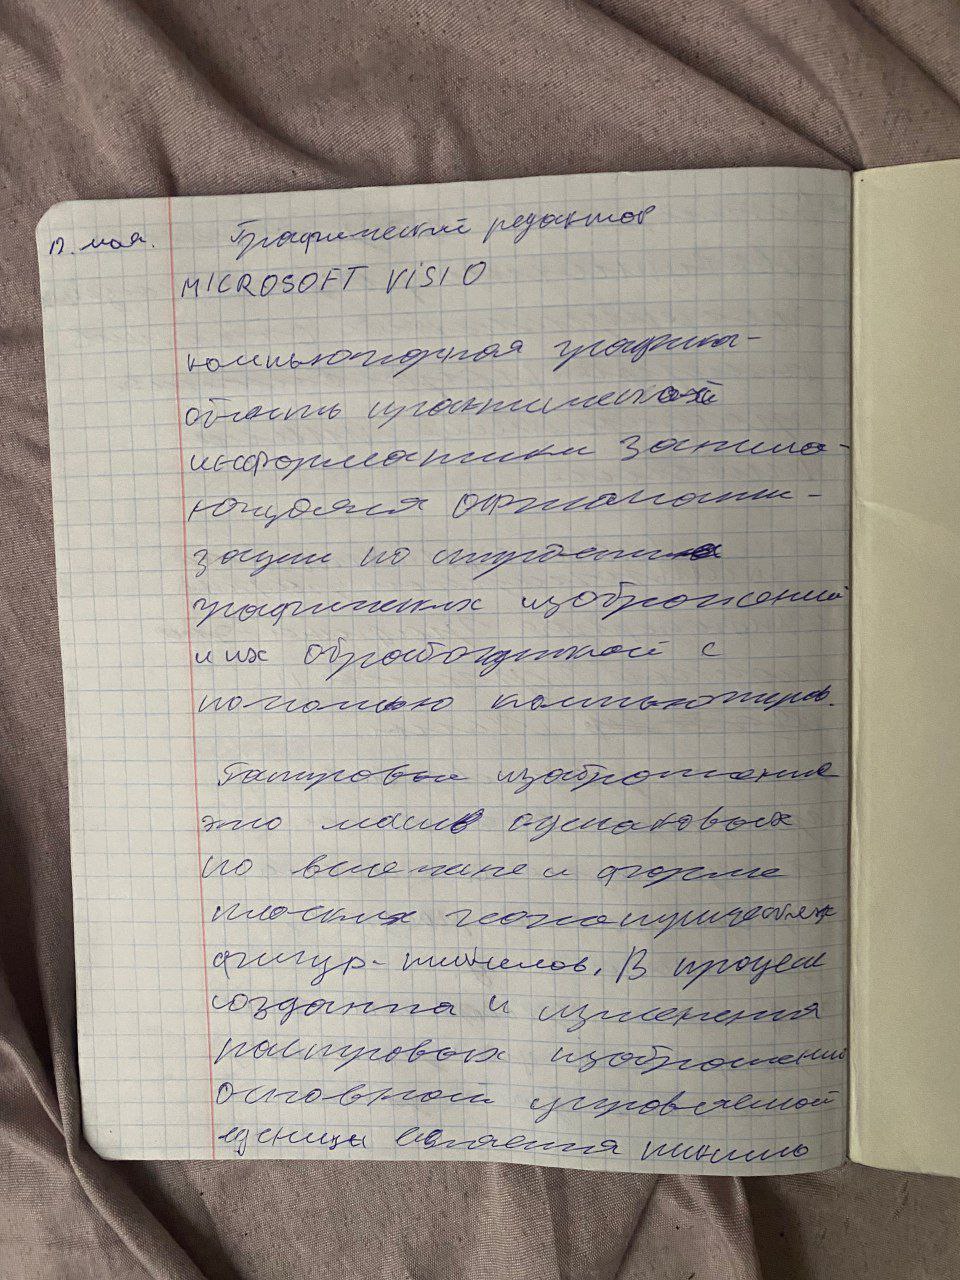 12. мая. Графический редактор
MICROSOFT ViSiO
компьютерная графика -
область практической
информатики занима-
ющаяся
зации по строению
графических изображений
и их обработкой с
помощью компьютеров.
Растровые изображения
это масив одинаковых
по величине и форме
плоских геометрических
фигур - пикселов. В процесе
создания и изменения
растровых изображений
основной управляемой
еденицы является